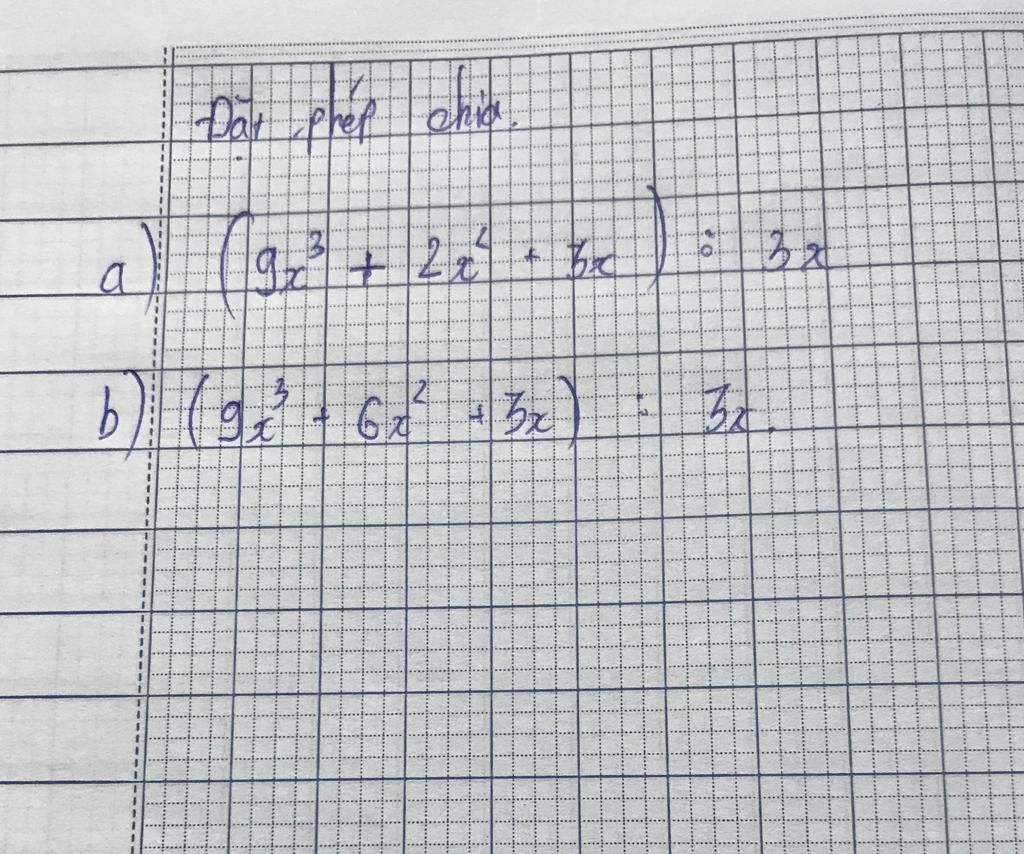 Đặt phép chia.
a) (9x³ + 2x² + 3x) : 3x
b) (9x³ + 6x² + 3x) : 3x.